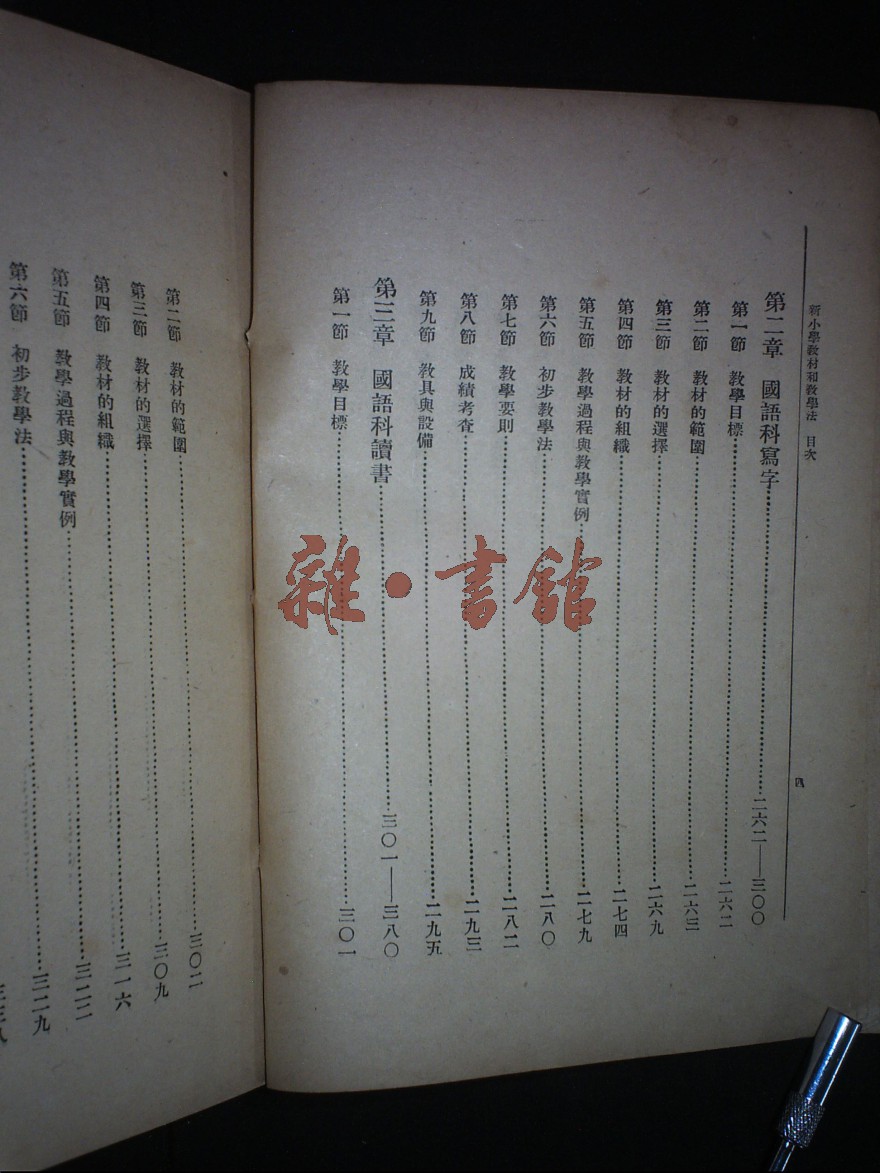 新小學教材和教學法 目次
四
第二章 國語科寫字………二六二——三〇〇
第一節 教學目標………二六二
第二節 教材的範圍………二六三
第三節 教材的選擇………二六九
第四節 教材的組織………二七四
第五節 教學過程與教學實例………二七九
第六節 初步教學法………二八〇
第七節 教學要則………二八二
第八節 成績考查………二九三
第九節 教具與設備………二九五
第三章 國語科讀書………三〇一——三八〇
第一節 教學目標………三〇一
第二節 教材的範圍………三〇二
第三節 教材的選擇………三〇九
第四節 教材的組織………三一六
第五節 教學過程與教學實例………三二二
第六節 初步教學法………三二九
雜·書館